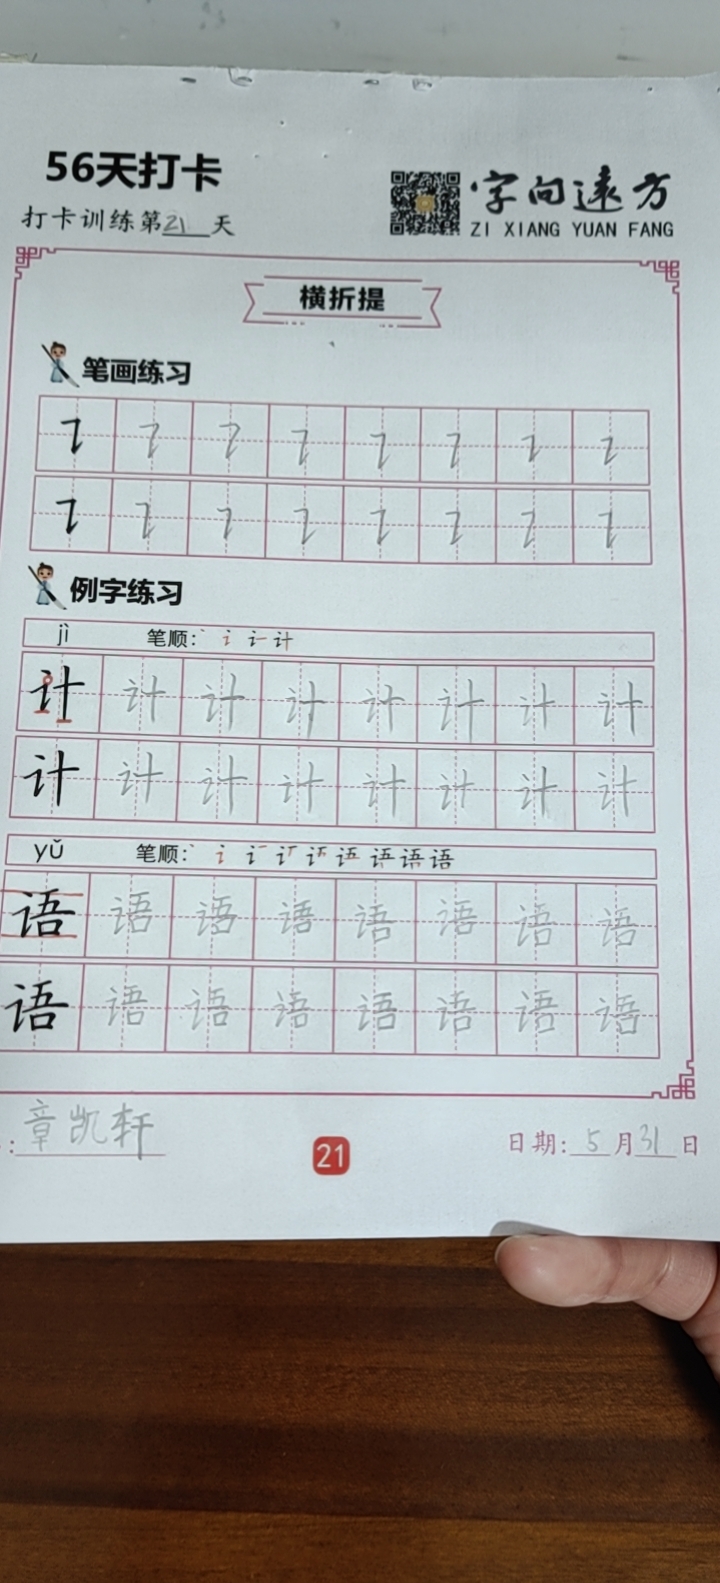 56天打卡
打卡训练第21天
字向远方
ZI XIANG YUAN FANG
横折提
笔画练习
例字练习
jì 笔顺:
计 计 计 计 计 计 计 计
计 计 计 计 计 计 计 计
yǔ 笔顺:
语 语 语 语 语 语 语 语
语 语 语 语 语 语 语 语
:章凯轩
21
日期:5月31日